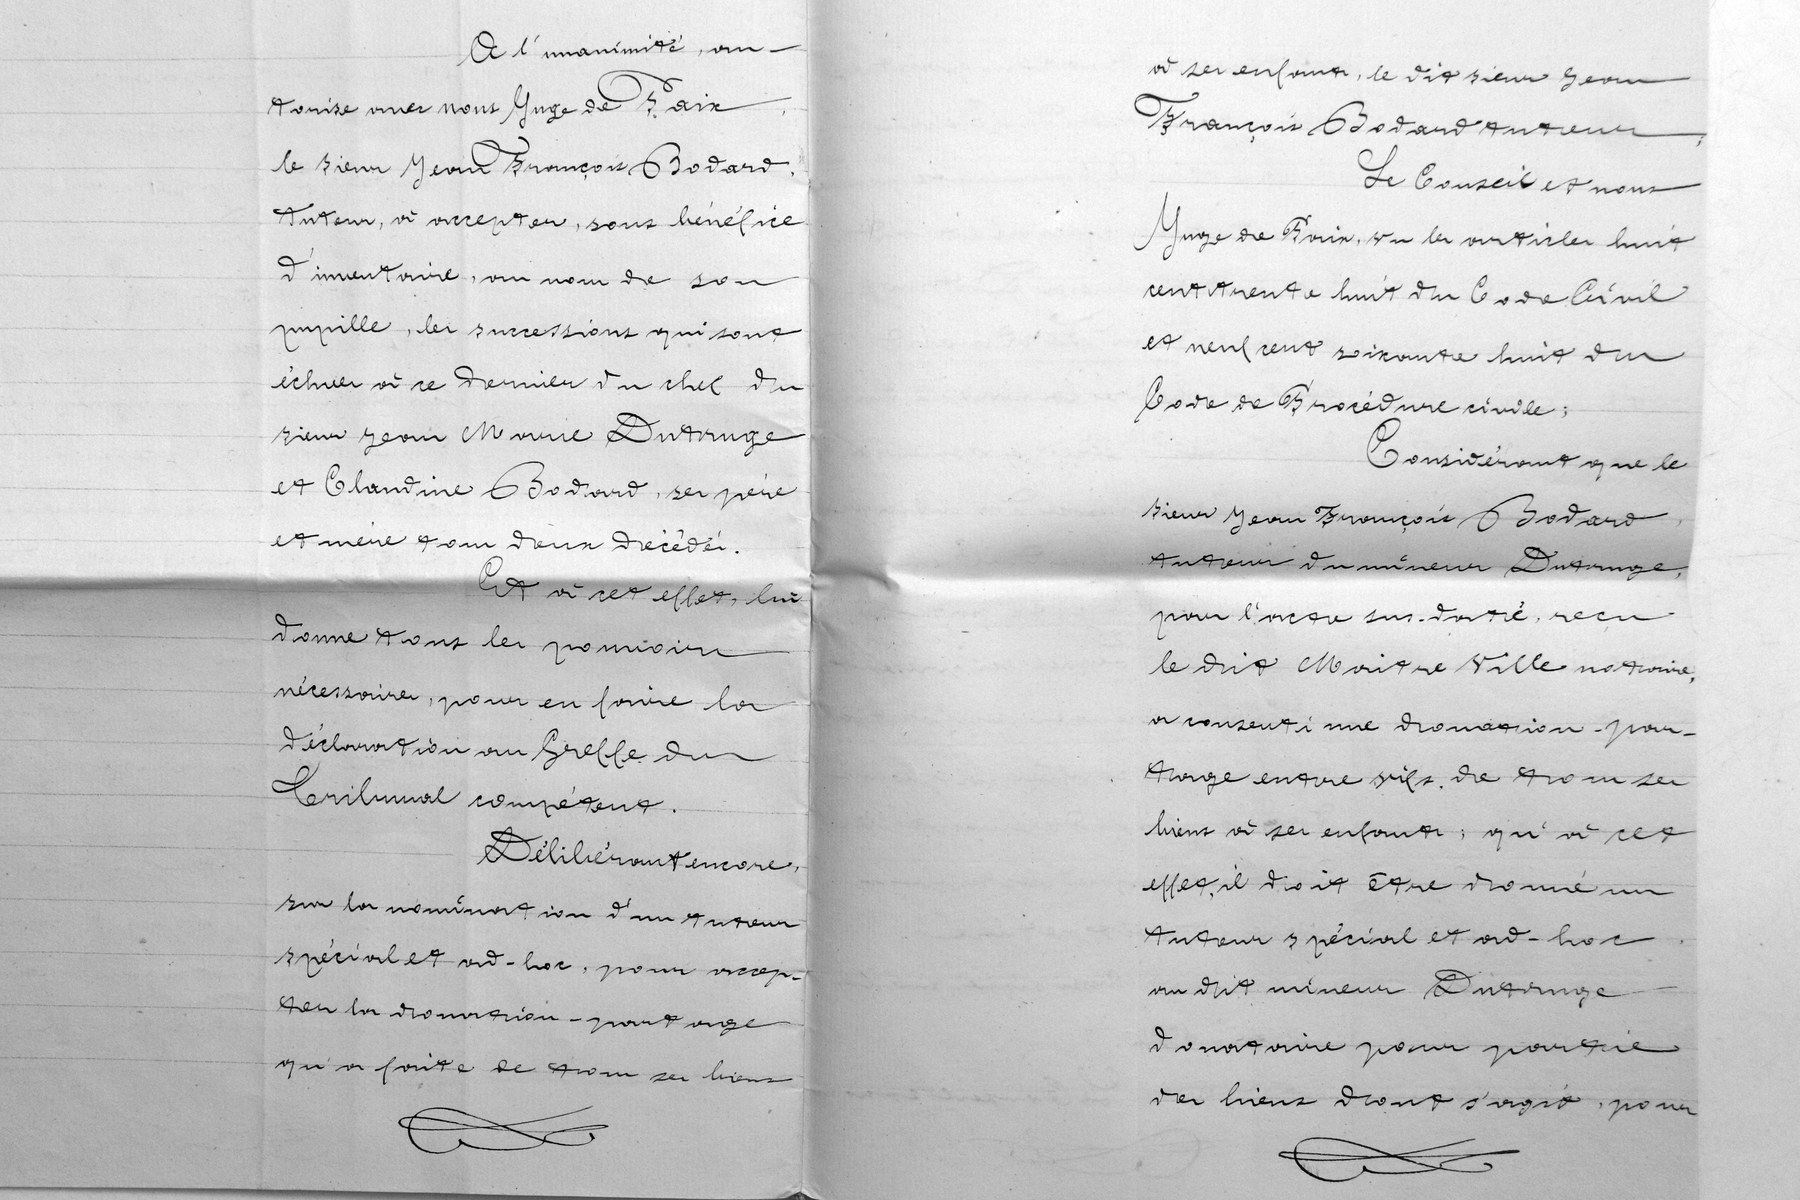 A l'unanimité, au-
torise avec nous Juge de Paix,
le sieur Jean François Bodard,
tuteur, à accepter, sous bénéfice
d'inventaire, au nom de son
pupille, les successions qui sont
échues à ce dernier du chef du
sieur Jean Marie Dutruge
et Claudine Bodard, ses père
et mère tous deux décédés.
Et à cet effet, lui
donne tous les pouvoirs
nécessaires, pour en faire la
déclaration au Greffe du
Tribunal compétent.
Délibérant encore,
sur la nomination d'un tuteur
spécial et ad-hoc, pour accep-
ter la donation-partage
qu'a faite de tous ses biens
à ses enfants, le dit sieur Jean
François Bodard tuteur;
Le Conseil et nous
Juge de Paix, vu les articles huit
cent trente huit du Code Civil
et neuf cent soixante huit du
Code de Procédure civile;
Considérant que le
sieur Jean François Bodard,
tuteur du mineur Dutruge,
pour l'acte sus-daté, reçu
le dit Maitre Ville notaire,
a consenti une donation-par-
tage entre vifs, de tous ses
biens à ses enfants; qu'à cet
effet, il doit être donné un
tuteur spécial et ad-hoc
au dit mineur Dutruge
donataire pour partie
des biens dont s'agit, pour